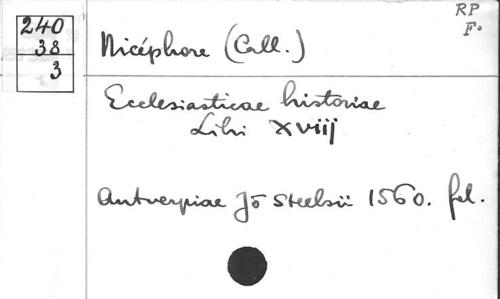 240
38
3
Nicéphore (Call.)
RP
F.
Ecclesiasticae historiae
Libri XViij
Antverpiae Jō Steelsii 1560. fol.